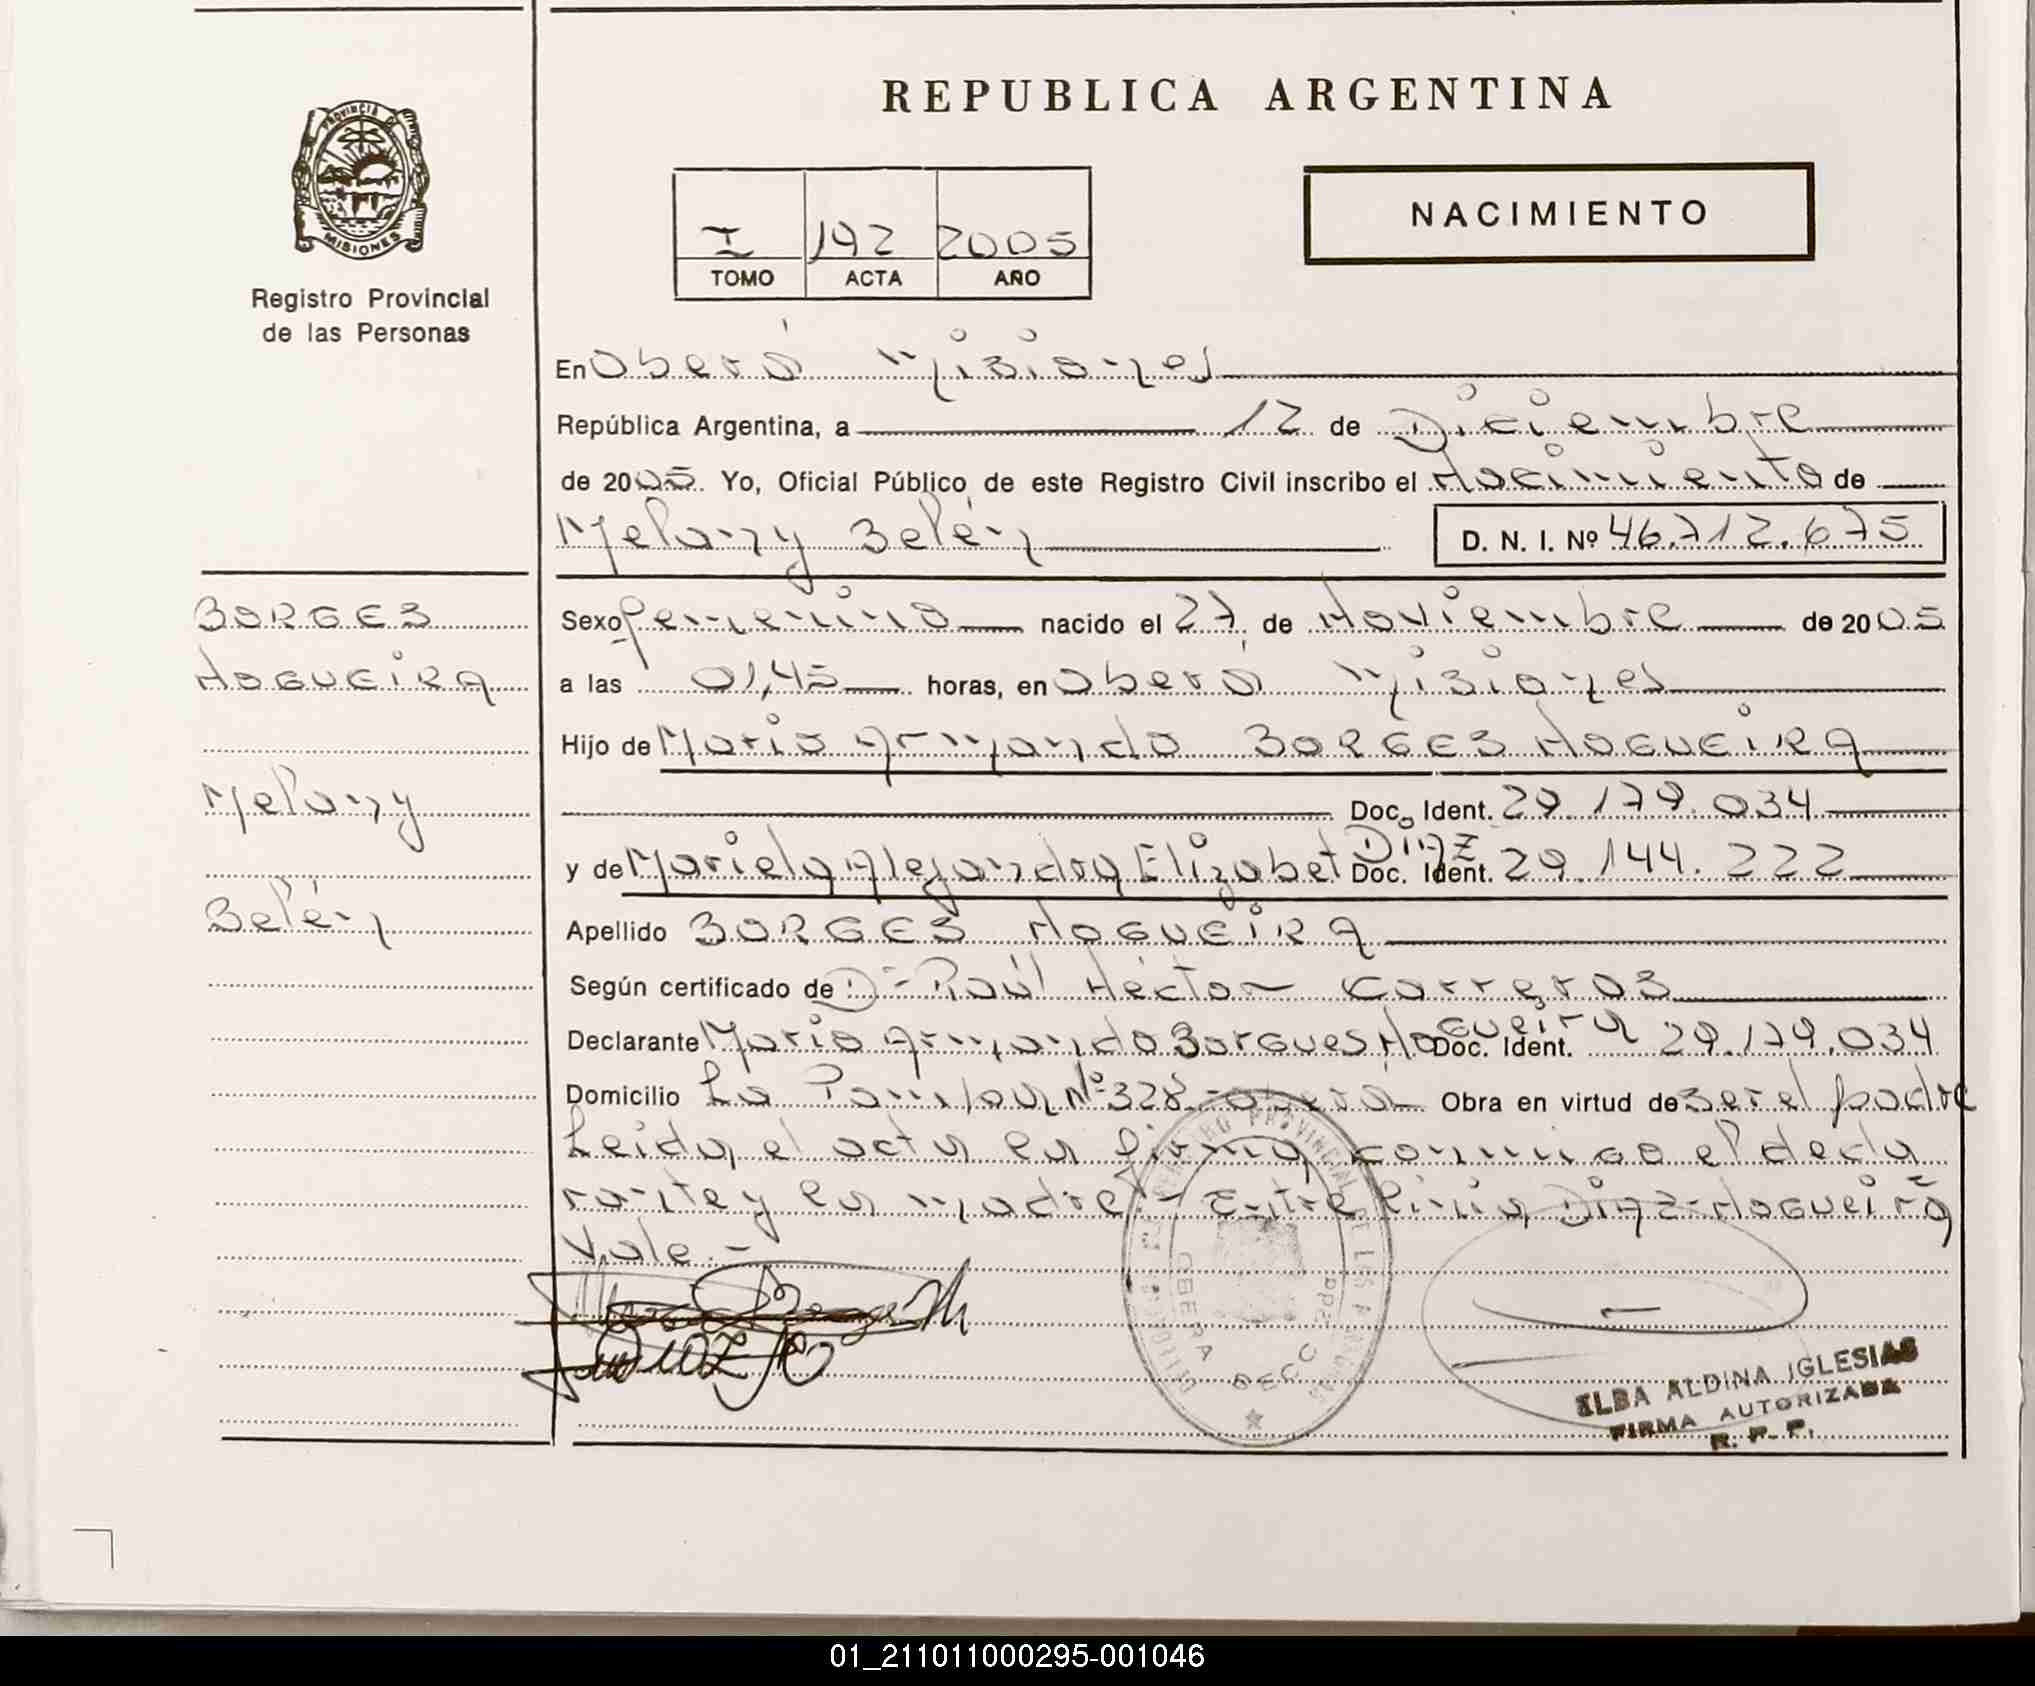 REPUBLICA ARGENTINA
PROVINCIA DE MISIONES
Registro Provincial
de las Personas
I 192 2005
TOMO ACTA AÑO
NACIMIENTO
En Oberá Misiones
República Argentina, a 12 de Diciembre
de 2005. Yo, Oficial Público de este Registro Civil inscribo el Nacimiento de
Melany Belén D. N. I. Nº 46.712.675
BORGES
NOGUEIRA
Melany
Belén
Sexo femenino nacido el 27 de Noviembre de 2005
a las 01,45 horas, en Oberá Misiones
Hijo de Mario Armando BORGES NOGUEIRA
Doc. Ident. 29.179.034
y de Mariela Alejandra Elizabet DIAZ Doc. Ident. 29.144.222
Apellido BORGES NOGUEIRA
Según certificado de Dr Raúl Héctor Carreras
Declarante Mario Armando Borgues Nogueira Doc. Ident. 29.179.034
Domicilio La Pampa Nº 328 - Oberá Obra en virtud de ser el padre
Leida el acta la firma conmigo el decla
rante y la madre - Entre linia DIAZ - Nogueira
Vale.-
REGISTRO PROVINCIAL DE LAS PERSONAS
OBERA
SECC
Dpto
ELBA ALDINA IGLESIAS
FIRMA AUTORIZADA
R. P. P.
01_211011000295-001046